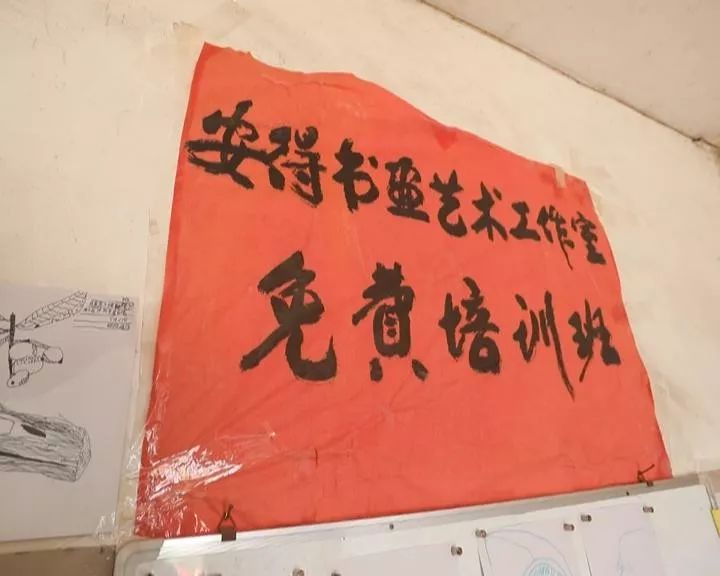 安得书画艺术工作室
免費培训班